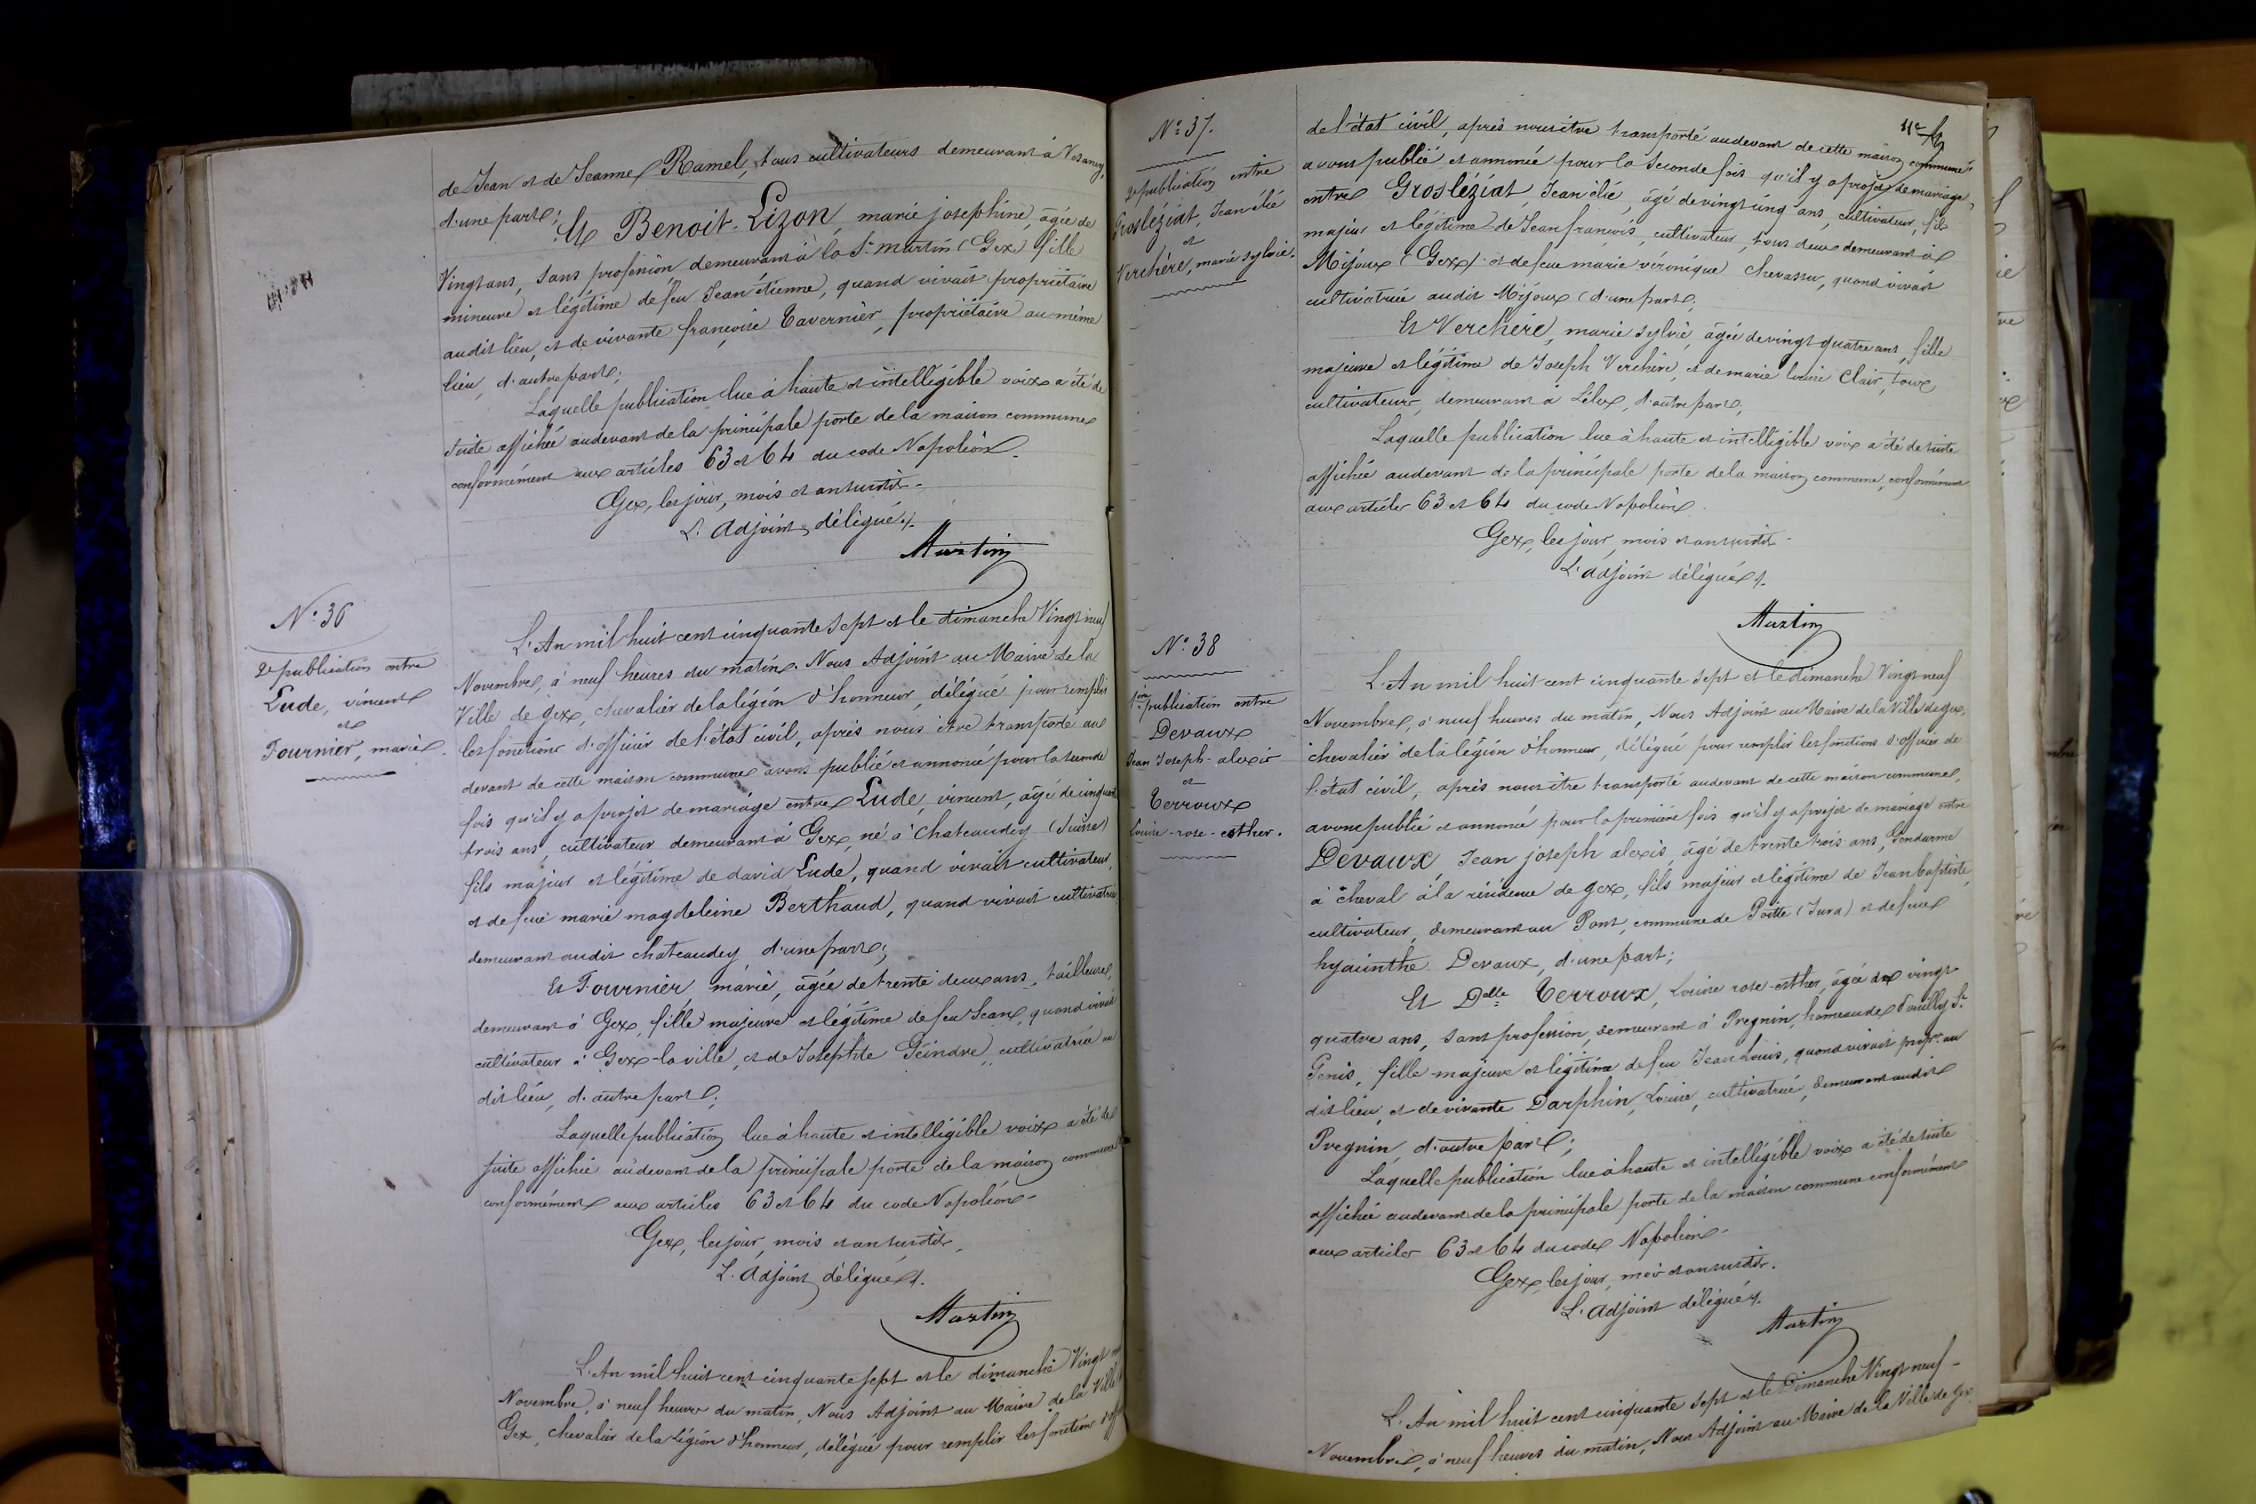 de Jean et de Jeanne Ramel, tous cultivateurs demeurant à Vesancy,
d'une part;
Et Benoit-Lizon, marie josephine, âgée de
Vingt ans, sans profession, demeurant à la St Martin (Gex) fille
mineure et légitime de feu Jean étienne, quand vivait propriétaire
audit lieu, et de vivante françoise Tavernier, propriétaire au même
lieu, d'autre part;
Laquelle publication lue à haute et intelligible voix a été de
suite affichée audevant de la principale porte de la maison commune
conformément aux articles 63 et 64 du code Napoléon.
Gex, les jour, mois et an susdits.
L'adjoint délégué.
Martin
N° 36
2e publication entre
Lude, vincent
et
Fournier, marie
L'An mil huit cent cinquante sept et le dimanche Vingt neuf
Novembre, à neuf heures du matin. Nous Adjoint au Maire de la
Ville de Gex, chevalier de la légion d'honneur, délégué pour remplir
les fonctions d'officier de l'état civil, après nous être transporté au
devant de cette maison commune avons publié et annoncé pour la seconde
fois qu'il y a projet de mariage entre Lude, vincent, âgé de cinquante
trois ans, cultivateur demeurant à Gex, né à Chateaudey (Suisse)
fils majeur et légitime de david Lude, quand vivait cultivateur,
et de feue marie magdeleine Berthaud, quand vivait cultivatrice
demeurant audit chateaudey, d'une part;
Et Fournier, marie, âgée de trente deux ans, tailleuse,
demeurant à Gex, fille majeure et légitime de feu Jean, quand vivait
cultivateur à Gex-la-ville, et de Josephte Geindre, cultivatrice au
dit lieu, d'autre part;
Laquelle publication lue à haute et intelligible voix a été de
suite affichée audevant de la principale porte de la maison commune
conformément aux articles 63 et 64 du code Napoléon.
Gex, les jour, mois et an susdits.
L'adjoint délégué.
Martin
L'An mil huit cent cinquante sept et le dimanche Vingt neuf
Novembre, à neuf heures du matin, Nous Adjoint au Maire de la Ville de
Gex, chevalier de la légion d'honneur, délégué pour remplir les fonctions d'officier
N° 37.
2e publication entre
Grosléziat, Jean élié
et
Verchère, marie sylvie.
de l'état civil, après nous être transporté audevant de cette maison commune,
avons publié et annoncé pour la seconde fois qu'il y a projet de mariage,
entre Grosléziat, Jean élié, âgé de vingt cinq ans, cultivateur, fils
majeur et légitime de Jean françois, cultivateur, tous deux demeurant à
Mijoux (Gex) et de feue marie véronique Chevassu, quand vivait
cultivatrice audit Mijoux, d'une part;
Et Verchère, marie sylvie, âgée de vingt quatre ans, fille
majeure et légitime de Joseph Verchère, et de marie louise Clair, tous
cultivateurs, demeurant à Lélex, d'autre part;
Laquelle publication lue à haute et intelligible voix a été de suite
affichée audevant de la principale porte de la maison commune, conformément
aux articles 63 et 64 du code Napoléon.
Gex, les jour, mois et an susdits.
L'adjoint délégué.
Martin
N° 38
1ère publication entre
Devaux
Jean Joseph-alexis
et
Terroux
Louise-rose-esther.
L'An mil huit cent cinquante sept et le dimanche Vingt neuf
Novembre, à neuf heures du matin, Nous Adjoint au Maire de la Ville de Gex,
chevalier de la légion d'honneur, délégué pour remplir les fonctions d'officier de
l'état civil, après nous être transporté audevant de cette maison commune,
avons publié et annoncé pour la première fois qu'il y a projet de mariage entre
Devaux, Jean joseph alexis, âgé de trente trois ans, Gendarme
à cheval à la résidence de Gex, fils majeur et légitime de Jean baptiste,
cultivateur, demeurant au Pont, commune de Poitte (Jura) et de feue
hyacinthe Devaux, d'une part;
Et Dlle Terroux, Louise rose-esther, âgée de vingt
quatre ans, sans profession, demeurant à Pregnin, hameau de Pouilly St
Genis, fille majeure et légitime de feu Jean Louis, quand vivait propre au
dit lieu, et de vivante Darphin, Louise, cultivatrice, demeurant audit
Pregnin, d'autre part;
Laquelle publication lue à haute et intelligible voix a été de suite
affichée audevant de la principale porte de la maison commune conformément
aux articles 63 et 64 du code Napoléon.
Gex, les jour, mois et an susdits.
L'adjoint délégué.
Martin
L'An mil huit cent cinquante sept et le Dimanche Vingt neuf
Novembre, à neuf heures du matin, Nous Adjoint au Maire de la Ville de Gex